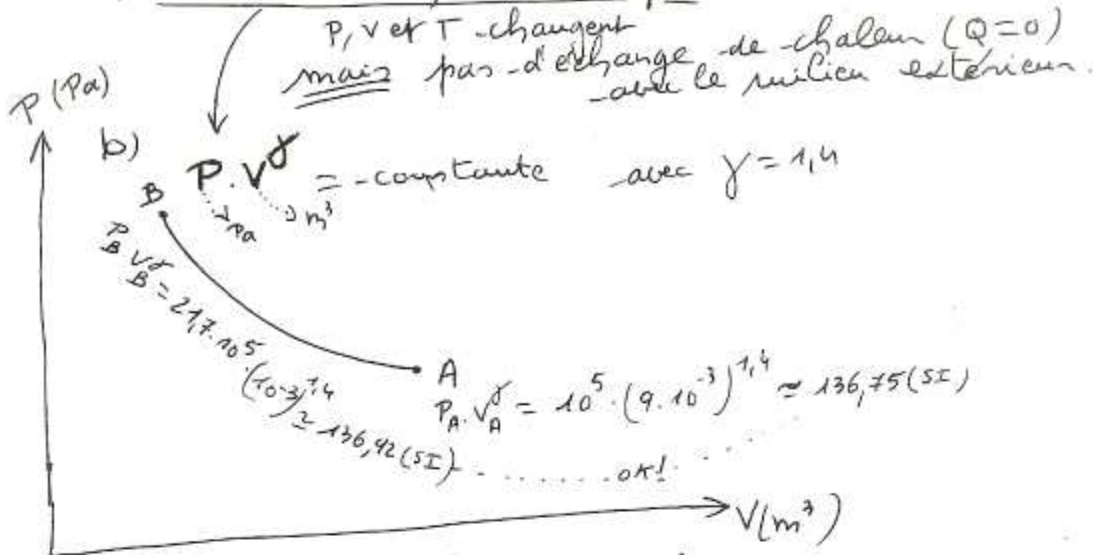 P, V et T changent
mais pas d'échange de chaleur (Q=0)
avec le milieu extérieur.
P (Pa)
b) P.V^γ = constante avec γ = 1,4
Pa
m³
B
P_B V_B^γ = 21,7.10^5.(10^-3)^1,4
≃ 136,92 (SI)
A
P_A.V_A^γ = 10^5.(9.10^-3)^1,4 ≃ 136,75 (SI)
OK!
V(m³)